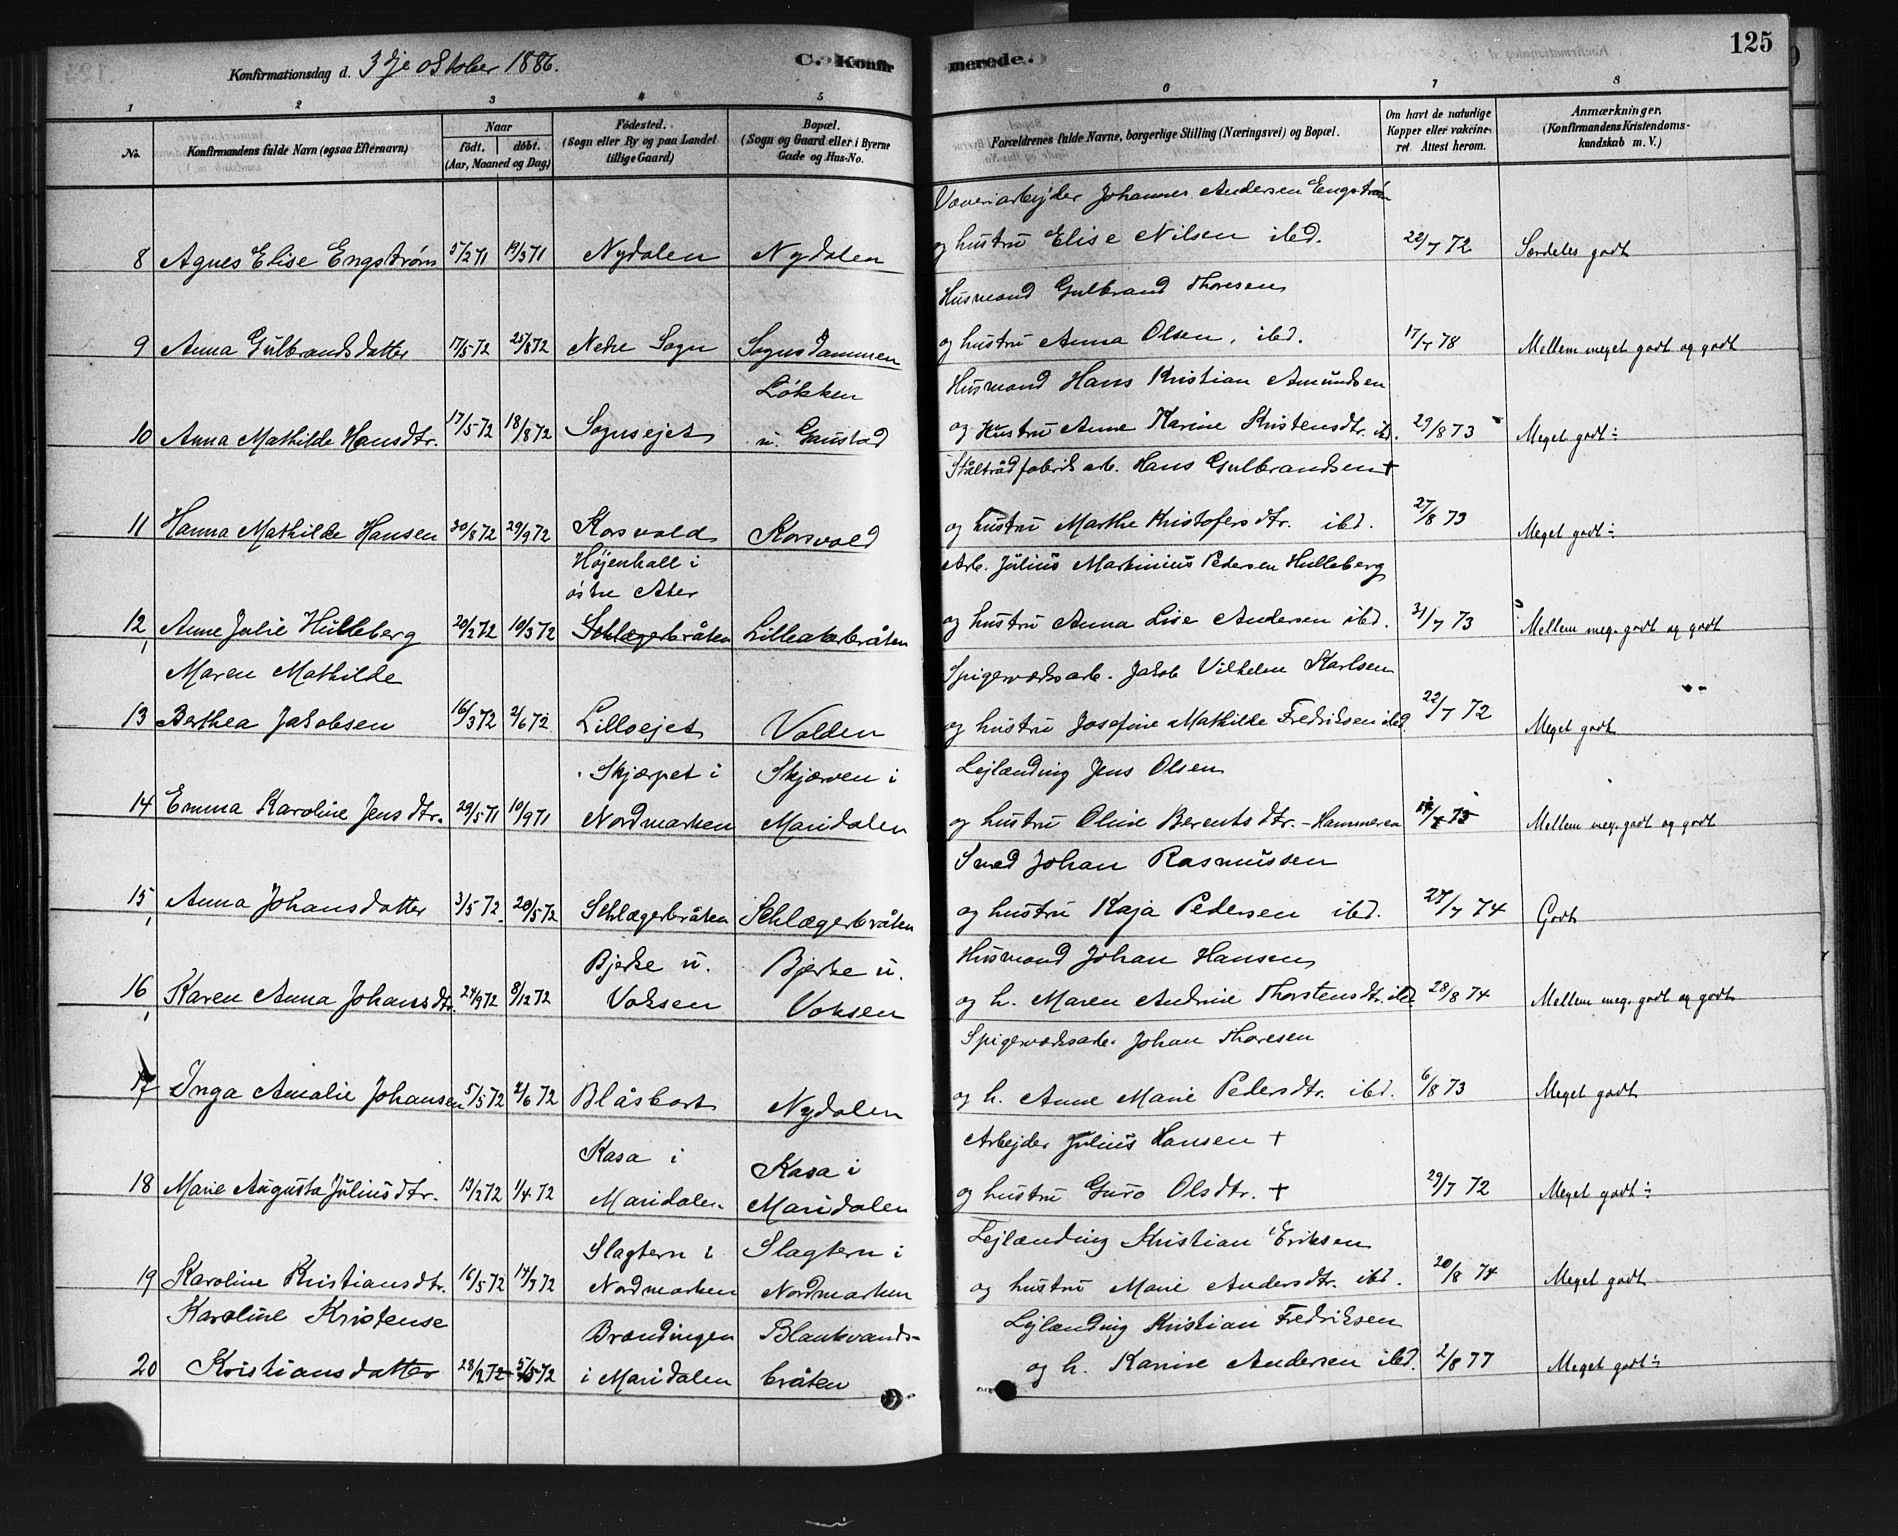 Konfirmationsdag d. 3dje oktober 1886.
C. Konfirmerede.
125
1 2 3 4 5 6 7 8
No.
Konfirmandens fulde Navn (ogsaa Efternavn)
Naar
født. døbt.
(Aar, Maaned og Dag)
Fødested.
(Sogn eller By og paa Landet
tillige Gaard)
Bopæl.
(Sogn og Gaard eller i Byerne
Gade og Hus-No.
Forældrenes fulde Navne, borgerlige Stilling (Næringsvei) og Bopæl.
Om havt de naturlige
Kopper eller vakcine-
ret. Attest herom.
Anmærkninger.
(Konfirmandens Kristendoms-
kundskab m. V.)
Væveriarbejder Johannes Andersen Engstrøm
8 Agnes Elise Engstrøm 5/2 71 19/3 71 Nydalen Nydalen og hustru Elise Nilsen ibd. 22/7 72 Særdeles godt
Husmand Gulbrand Thoresen
9 Anna Gulbrandsdatter 17/5 72 25/8 72 Sogn Sognsdammen og hustru Anna Olsen, ibd. 17/7 78 Mellem meget godt og godt
Løkken Husmand Hans Kristian Amundsen
10 Anna Mathilde Hansdtr. 17/5 72 18/8 72 Sognsejet u. Gaustad og Hustru Anne Karine Kristensdtr. ibd. 29/8 73 Meget godt÷
Ståltrådfabrik arb. Hans Gulbrandsen +
11 Hanna Mathilde Hansen 30/8 72 29/9 72 Korsvold Korsvold og hustru Marthe Kristofersdtr. ibd. 27/8 73 Meget godt÷
Højenhall i Arb. Julius Martinius Pedersen Hulleberg
østre Aker
12 Anne Julie Hulleberg 20/2 72 10/3 72 Schlægerbråten Lilleakerbråten og hustru Anna Lise Andersen ibd. 31/7 73 Mellem meg. godt og godt
Maren Mathilde Spigerværksarb. Jakob Vilhelm Karlsen
13 Berthea Jakobsen 16/3 72 2/6 72 Lilloejet Volden og hustru Josefine Mathilde Fredriksen ibd. 22/7 72 Meget godt
Skjærpet i Skjærven i Lejlænding Jens Olsen
14 Emma Karoline Jensdtr. 29/5 71 10/9 71 Nordmarken Maridalen og hustru Oline Berentsdtr. - Hammeren Mellem meg. godt og godt
Smed Johan Rasmussen
15 Anna Johansdatter 3/5 72 20/5 72 Schlægerbråten Schlægerbråten og hustru Kaja Pedersen ibd. 27/7 74 Godt
Bjerke u. Bjerke u. Husmand Johan Hansen
16 Karen Anna Johansdtr. 24/9 72 8/12 72 Voksen Voksen og h. Maren Andrine Thorstensdtr. ibd. 28/8 74 Mellem meg. godt og godt
Spigerværksarb. Johan Thoresen
17 Inga Amalie Johansen 5/5 72 2/6 72 Blåsbort Nydalen og h. Anne Marie Pedersdtr. ibd. 6/8 73 Meget godt
Kasa i Kasa i Arbejder Julius Hansen +
18 Marie Augusta Juliusdtr. 13/2 72 1/4 72 Maridalen Maridalen og hustru Guro Olsdtr. + 29/7 72 Meget godt÷
Slagtern i Slagtern i Lejlænding Kristian Eriksen
19 Karoline Kristiansdtr. 16/5 72 14/7 72 Nordmarken Nordmarken og hustru Marie Andersdtr. ibd. 20/8 74 Meget godt
Karoline Kristense Brændingen Blankvands- Lejlænding Kristian Fredriksen
20 Kristiansdatter 28/2 72 5/5 72 i Maridalen bråten og h. Karine Andersen ibd. 2/8 77 Meget godt÷